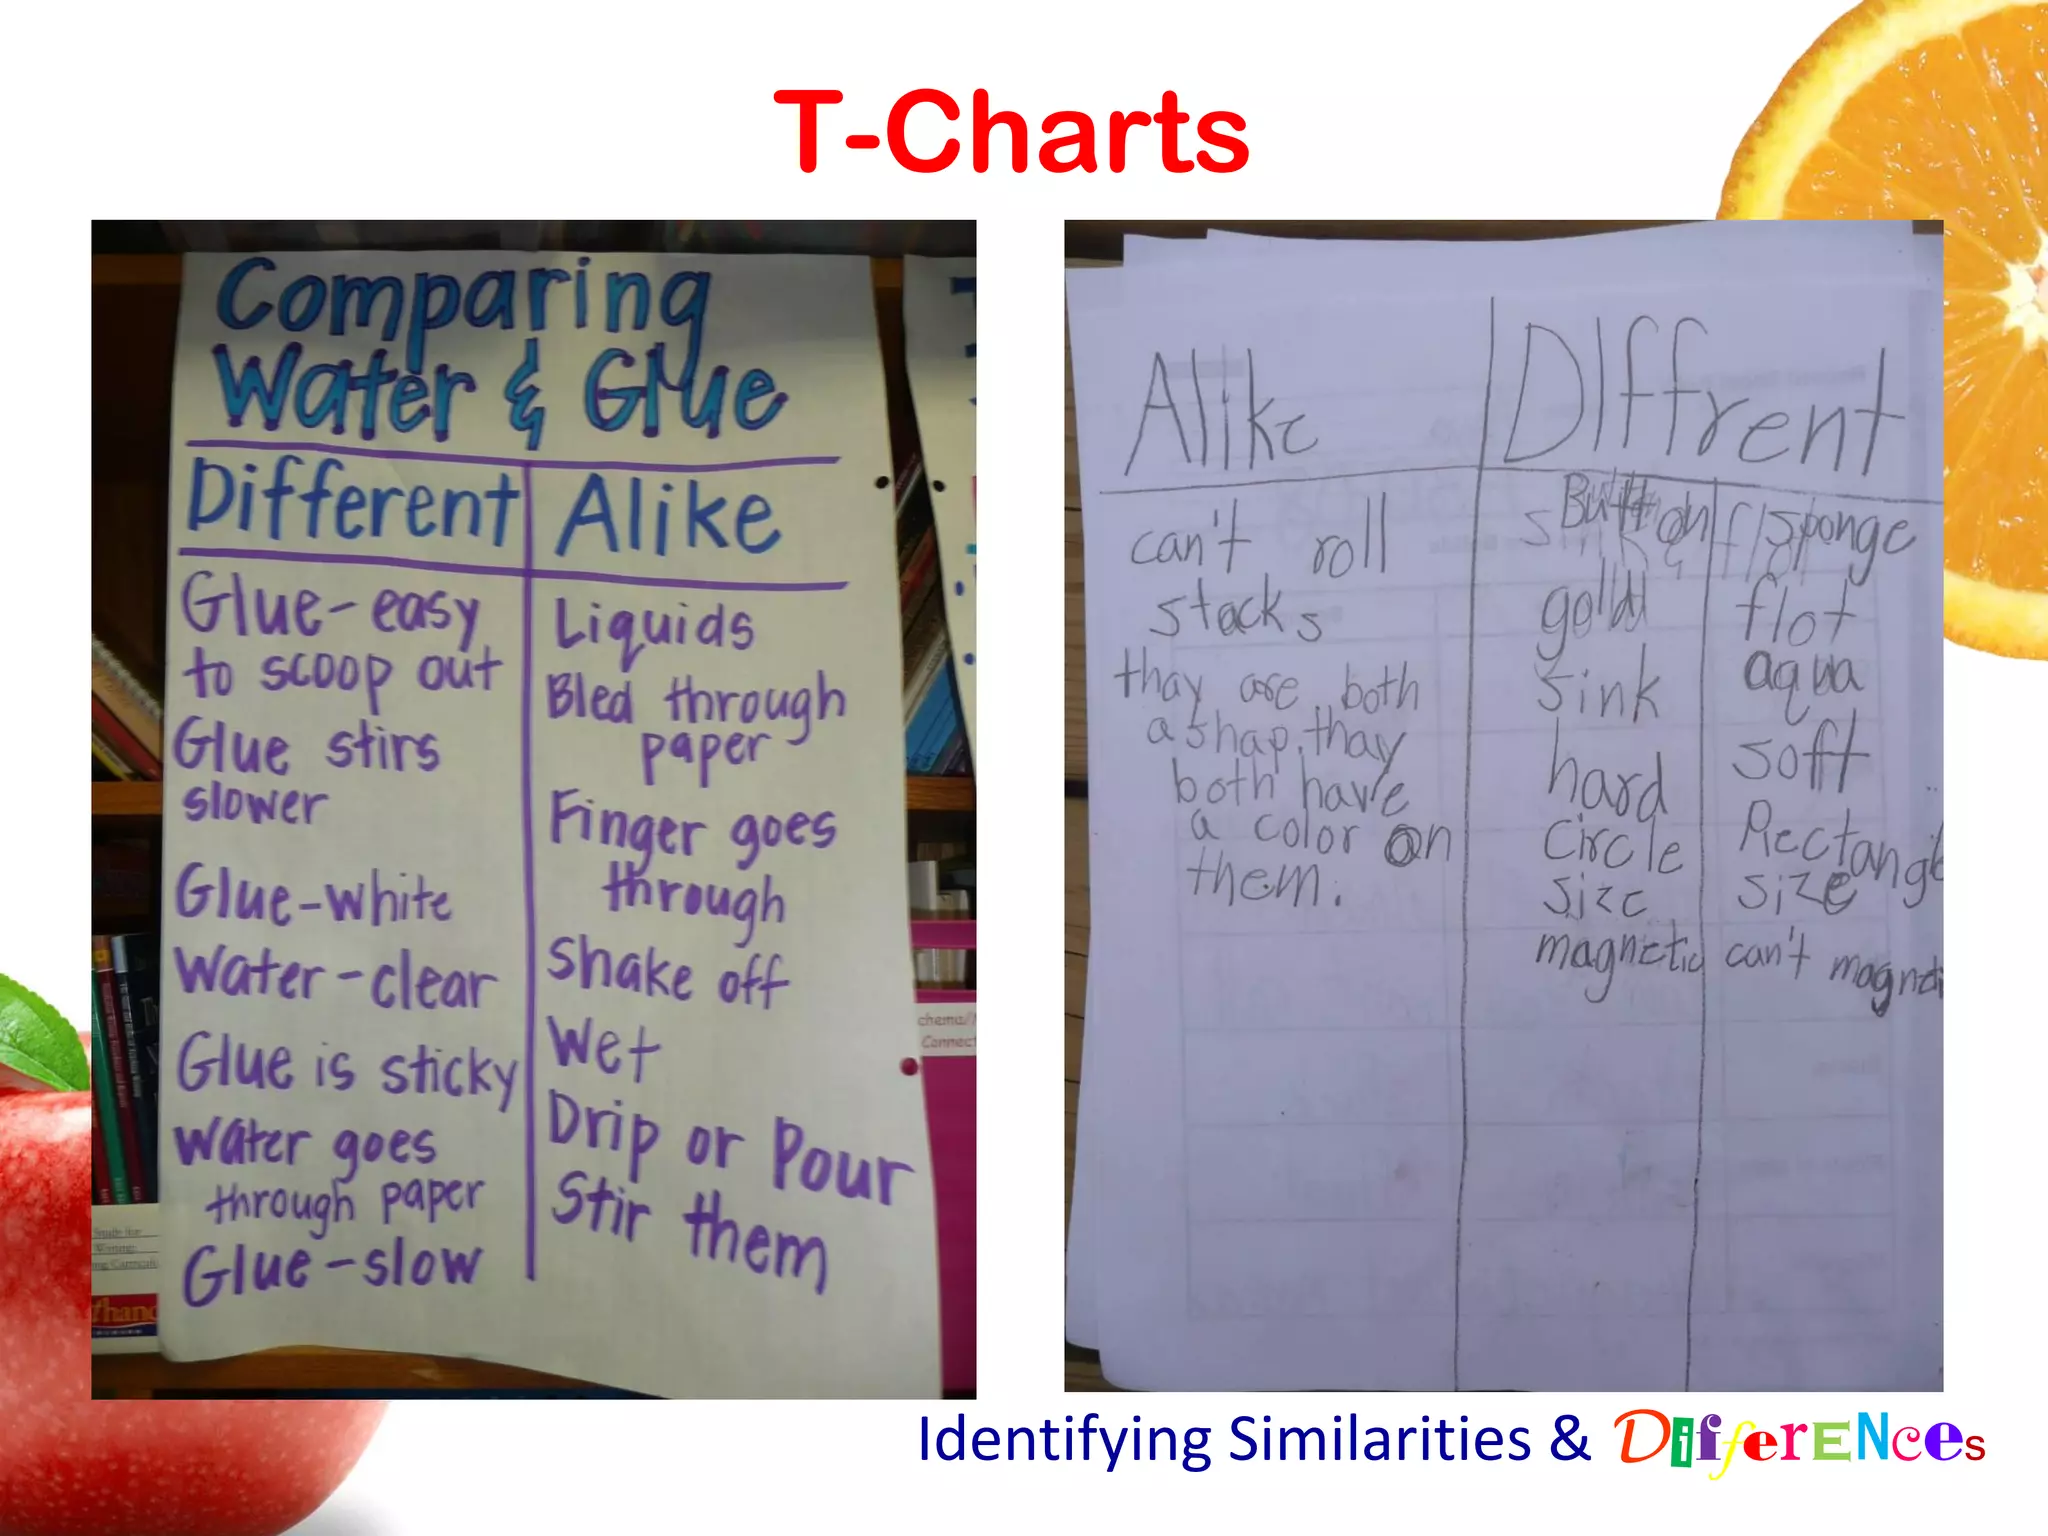 T-Charts
Comparing
Water & Glue
Different
Glue-easy
to scoop out
Glue stirs
slower
Glue-white
Water-clear
Glue is sticky
Water goes
through paper
Glue-slow
Alike
Liquids
Bled through
paper
Finger goes
through
Shake off
Wet
Drip or Pour
Stir them
chema/
Connect
Alike
can't roll
stacks
thay are both
a shap. thay
both have
a color on
them.
DIffrent
Button
gold
sink
hard
circle
size
magnetic
sponge
flot
aqua
soft
Rectangle
size
can't magneti
Identifying Similarities & DifferENces